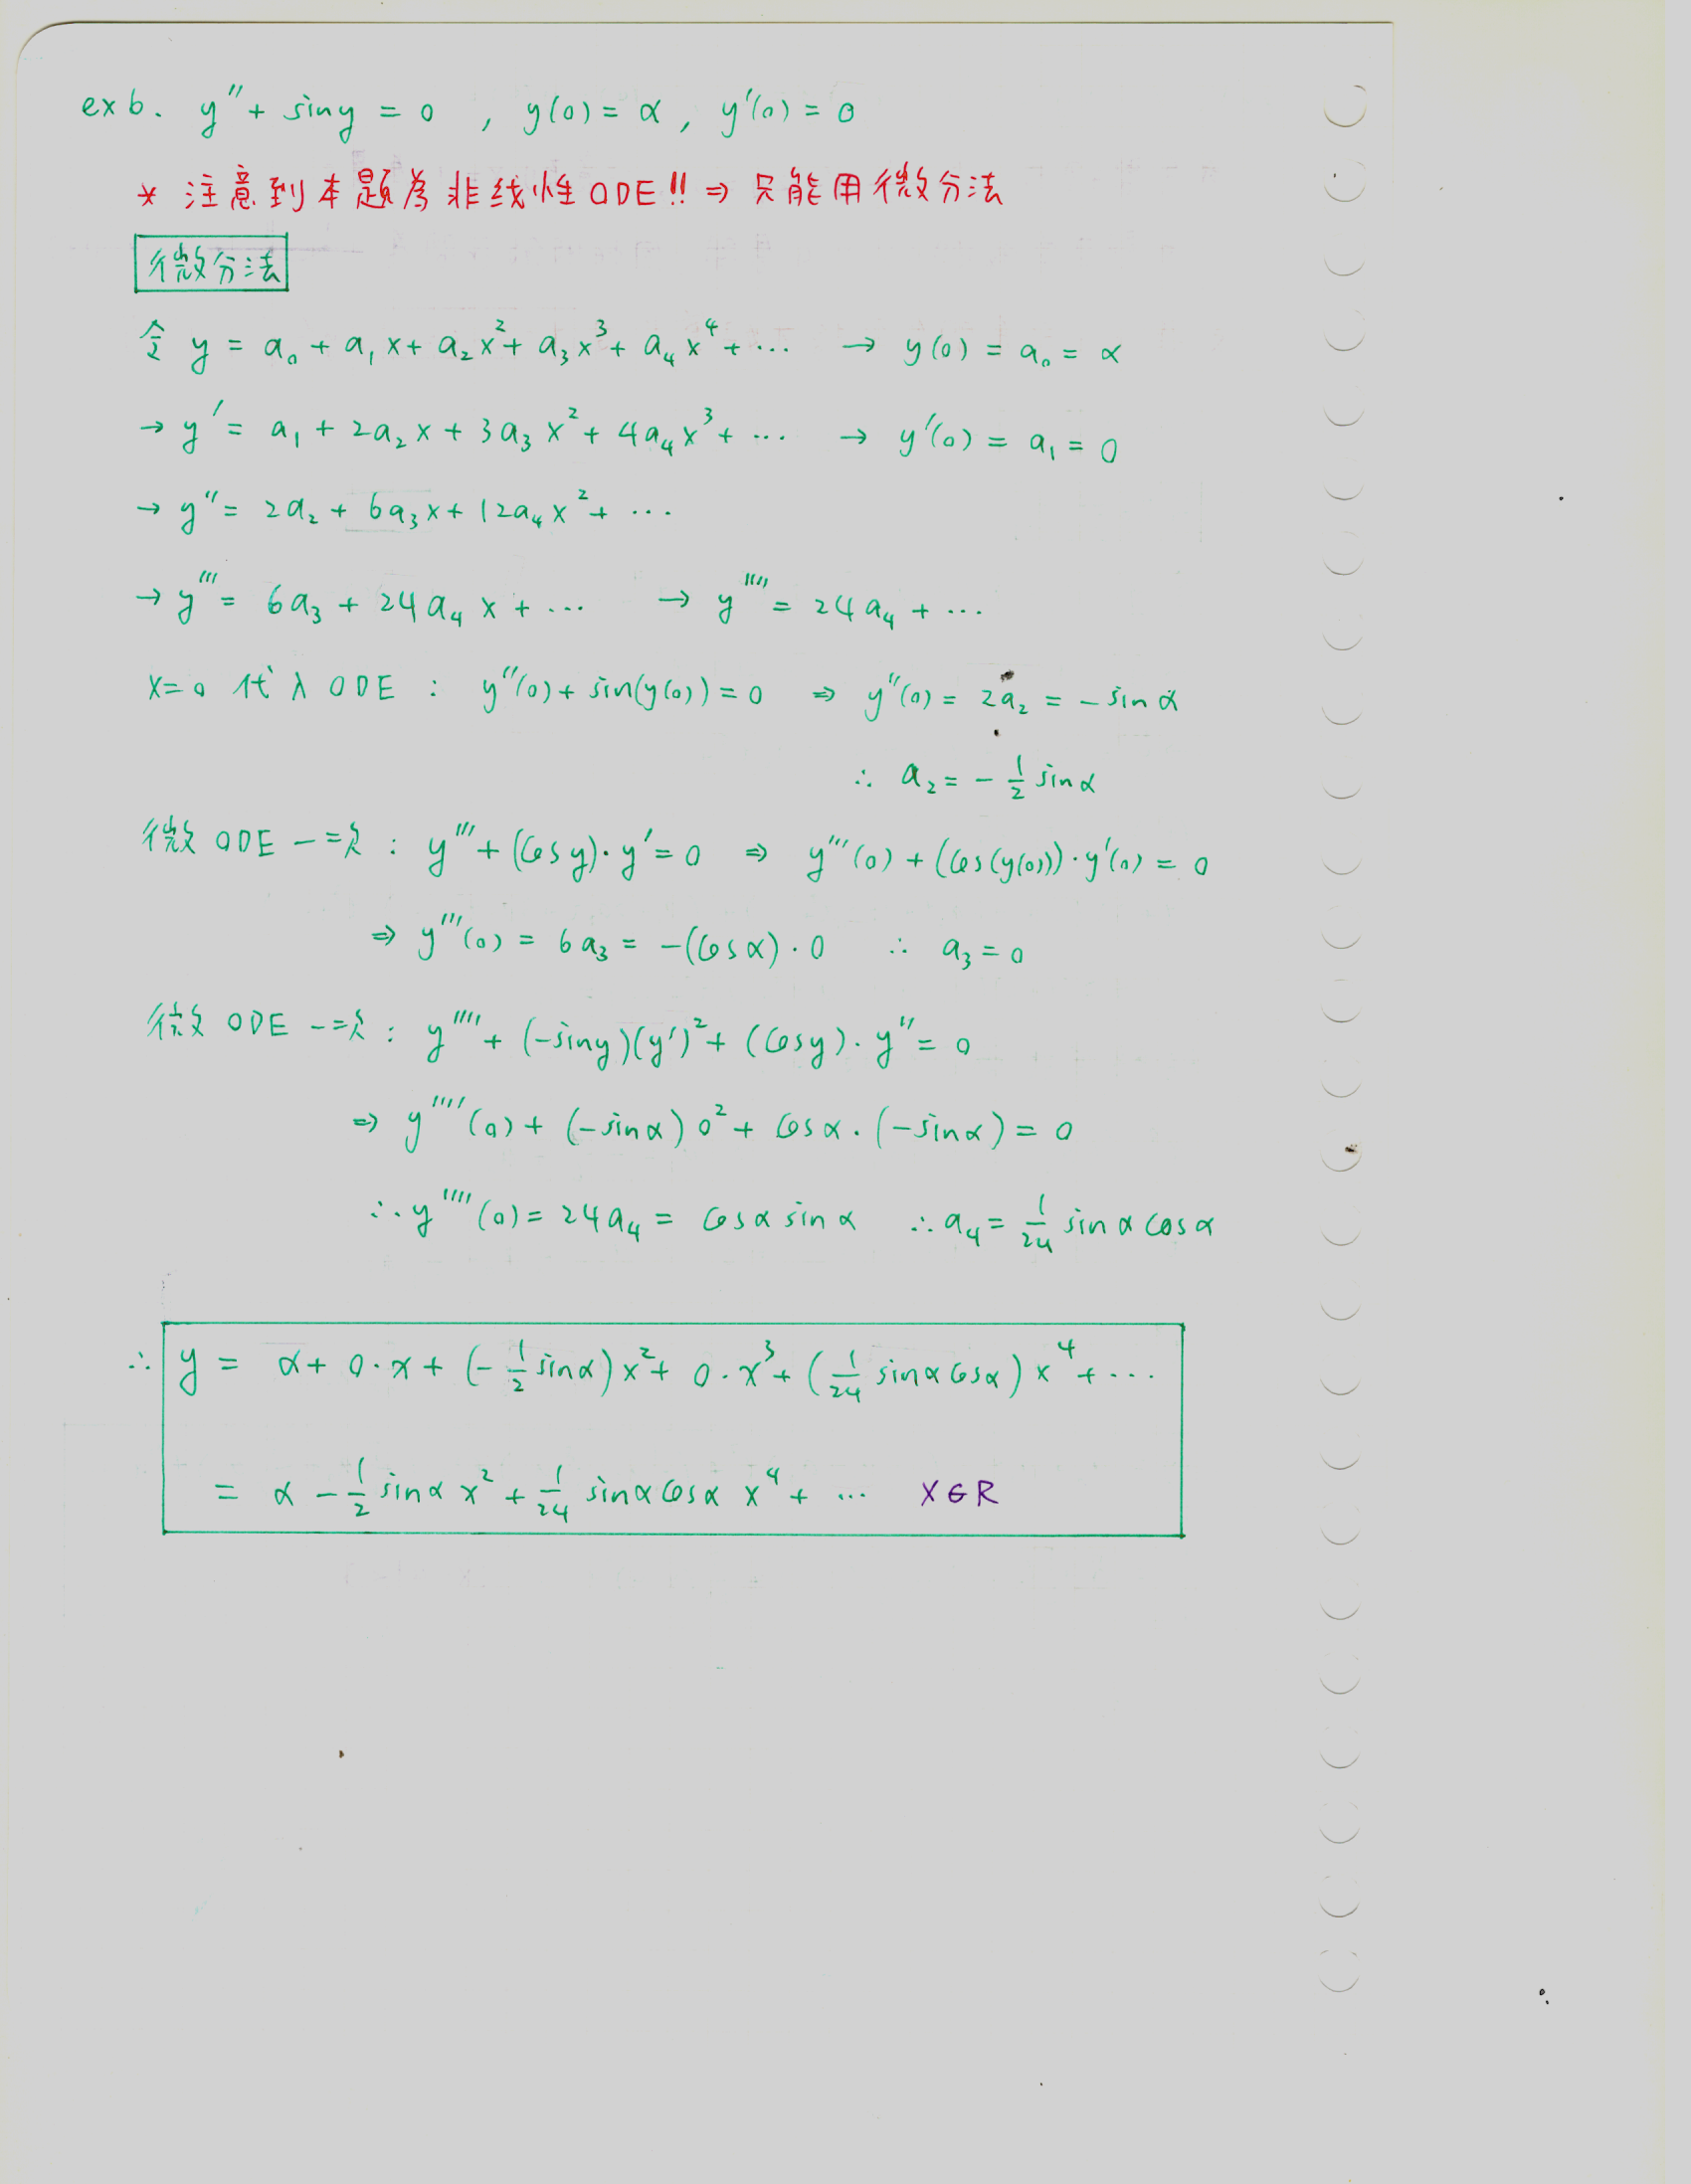 ex6. y'' + sin y = 0 , y(0) = α , y'(0) = 0
* 注意到本題為非线性ODE!! ⇒ 只能用微分法
微分法
令 y = a₀ + a₁x + a₂x² + a₃x³ + a₄x⁴ + ⋯ → y(0) = a₀ = α
→ y' = a₁ + 2a₂x + 3a₃x² + 4a₄x³ + ⋯ → y'(0) = a₁ = 0
→ y'' = 2a₂ + 6a₃x + 12a₄x² + ⋯
→ y''' = 6a₃ + 24a₄x + ⋯ → y'''' = 24a₄ + ⋯
x=0 代入 ODE : y''(0) + sin(y(0)) = 0 ⇒ y''(0) = 2a₂ = -sin α
∴ a₂ = -1/2 sin α
微 ODE 一次 : y''' + (cos y)·y' = 0 ⇒ y'''(0) + (cos(y(0)))·y'(0) = 0
⇒ y'''(0) = 6a₃ = -(cos α)·0 ∴ a₃ = 0
微 ODE 一次 : y'''' + (-sin y)(y')² + (cos y)·y'' = 0
⇒ y''''(0) + (-sin α)0² + cos α·(-sin α) = 0
∴ y''''(0) = 24a₄ = cos α sin α ∴ a₄ = 1/24 sin α cos α
∴ y = α + 0·x + (-1/2 sin α)x² + 0·x³ + (1/24 sin α cos α)x⁴ + ⋯
= α - 1/2 sin α x² + 1/24 sin α cos α x⁴ + ⋯ x∈R